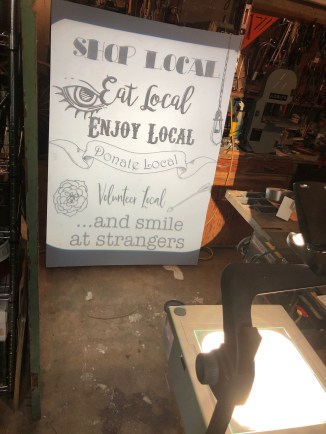 SHOP LOCAL
Eat Local
ENJOY LOCAL
Donate Local
Volunteer Local
...and smile
at strangers